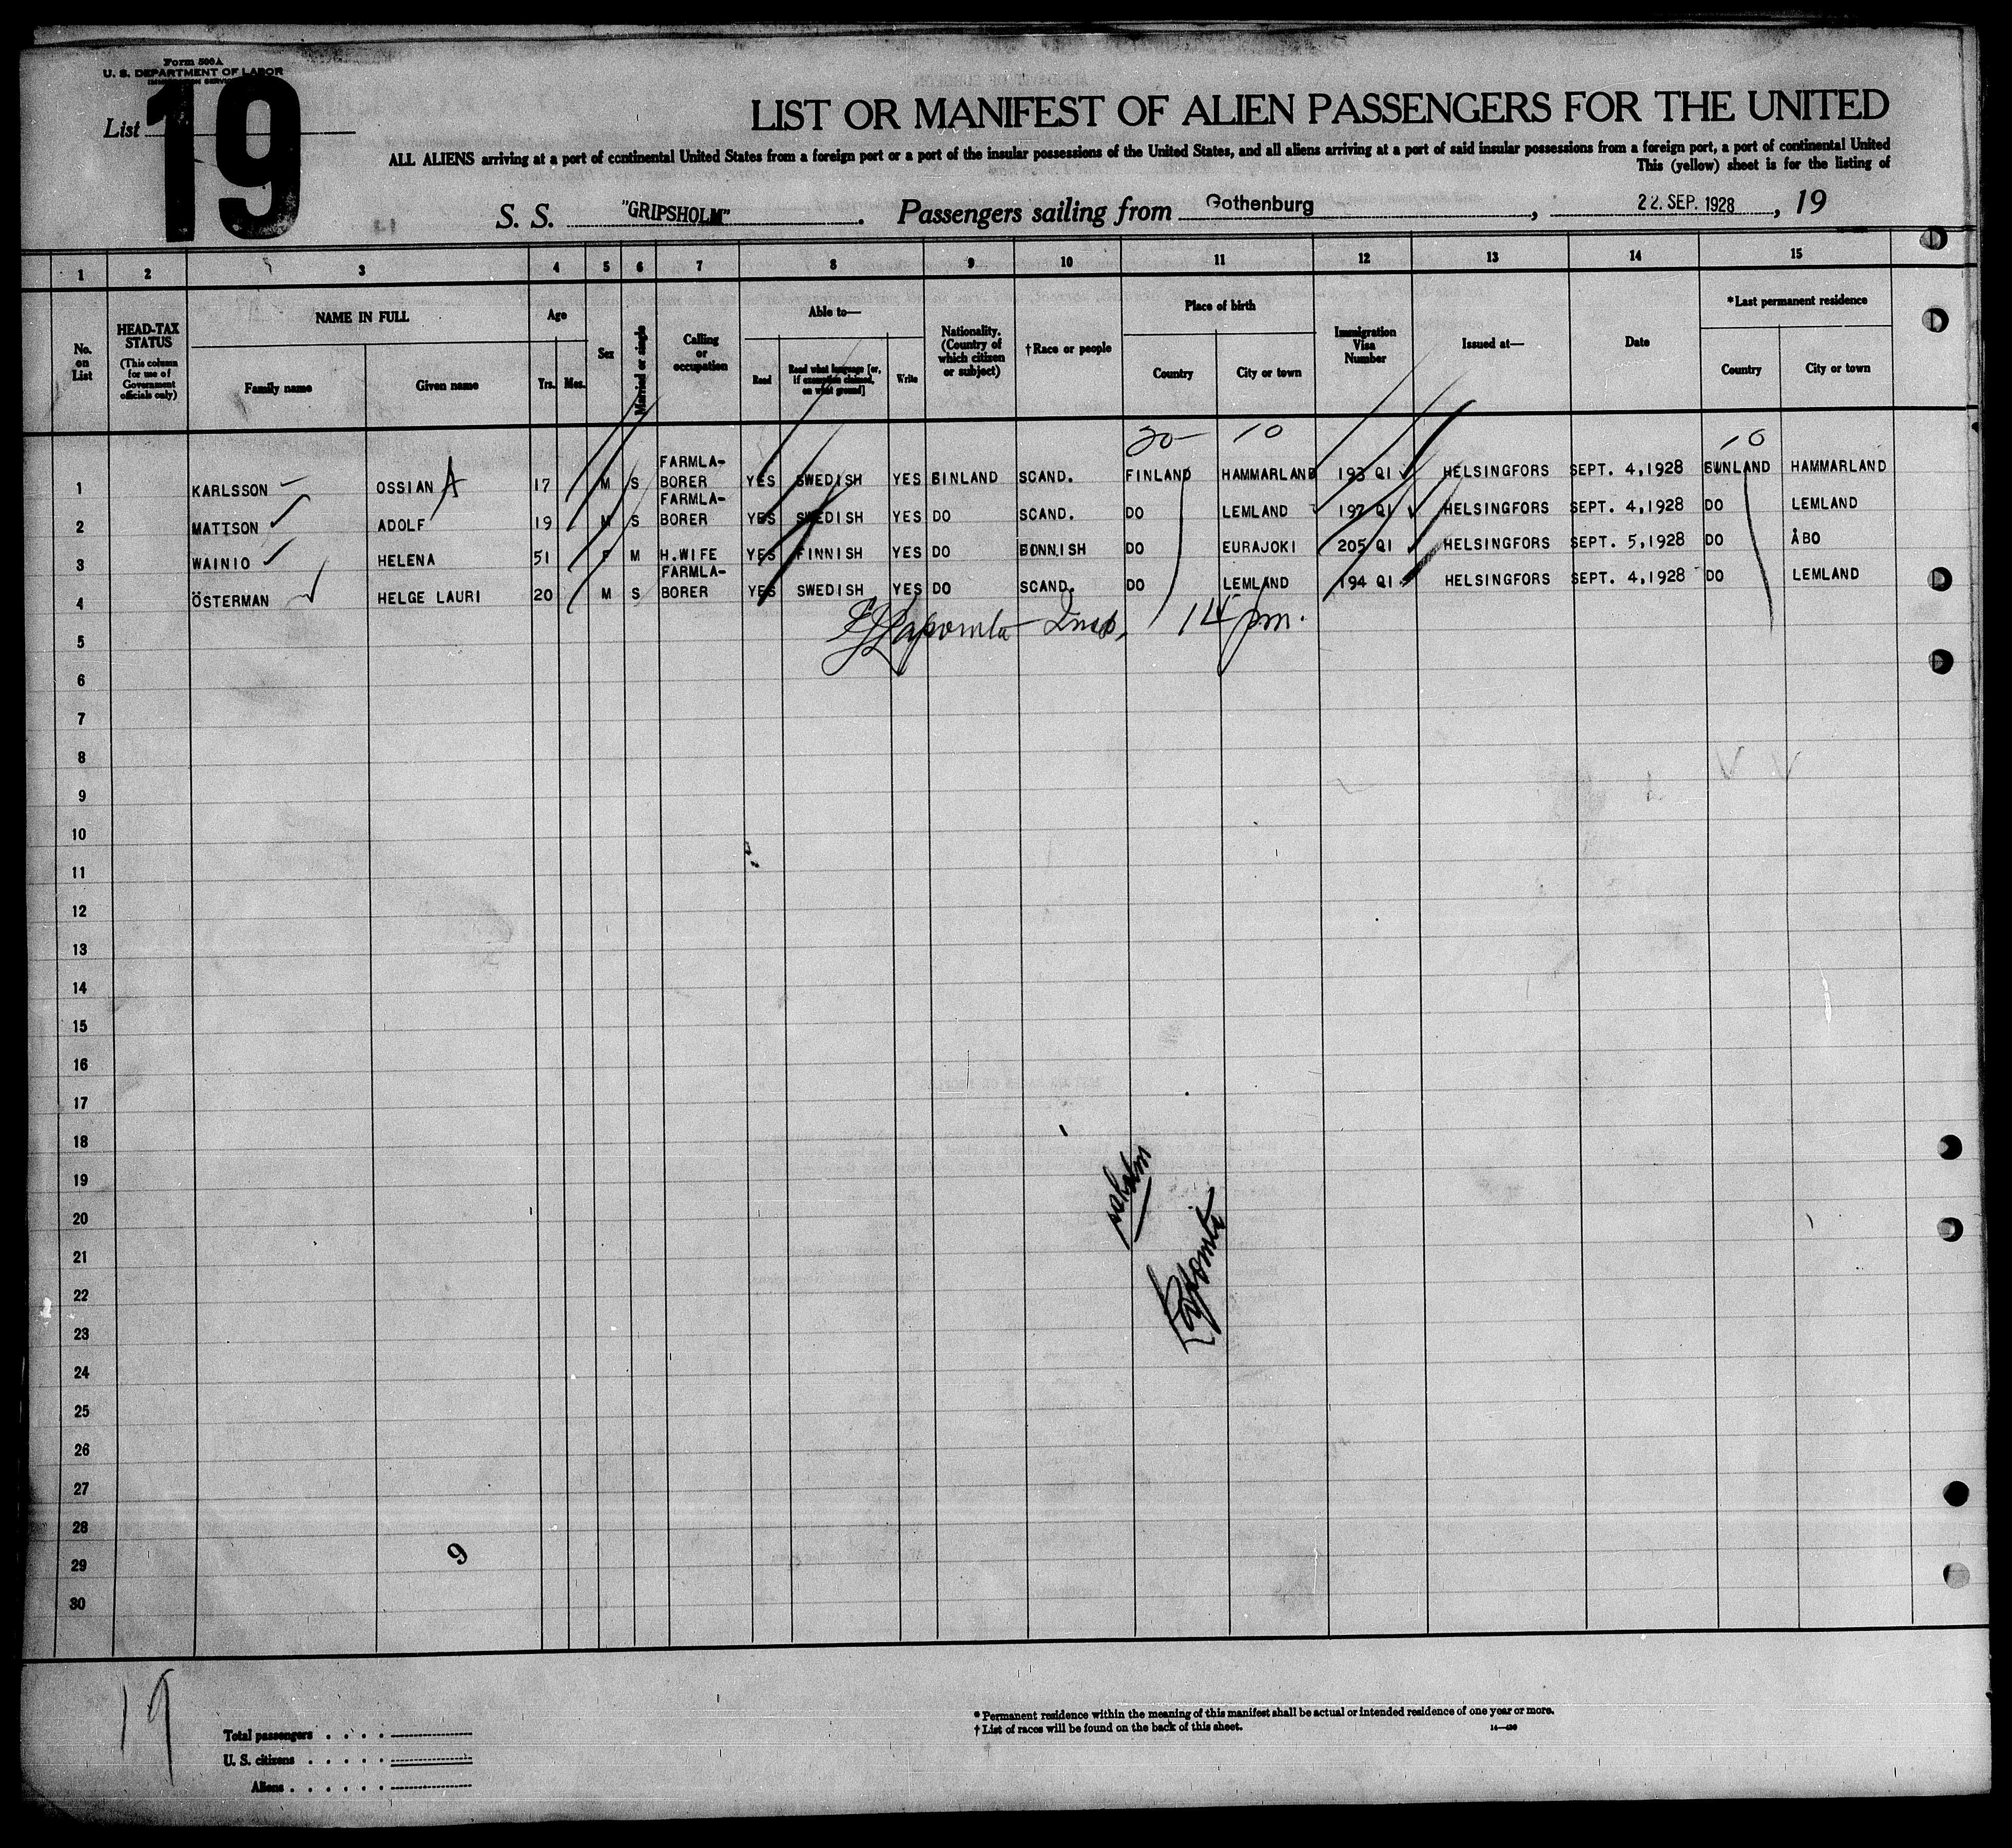 Form 500A
U. S. DEPARTMENT OF LABOR
IMMIGRATION SERVICE
List 19
LIST OR MANIFEST OF ALIEN PASSENGERS FOR THE UNITED
ALL ALIENS arriving at a port of continental United States from a foreign port or a port of the insular possessions of the United States, and all aliens arriving at a port of said insular possessions from a foreign port, a port of continental United
This (yellow) sheet is for the listing of
S. S. "GRIPSHOLM". Passengers sailing from Gothenburg, 22. SEP. 1928, 19
1 2 3 4 5 6 7 8 9 10 11 12 13 14 15
No. on List
HEAD-TAX STATUS (This column for use of Government officials only)
NAME IN FULL
Family name Given name
Age
Yrs. Mos.
Sex
Married or single
Calling or occupation
Able to—
Read Read what language [or, if exemption claimed, on what ground] Write
Nationality. (Country of which citizen or subject)
†Race or people
Place of birth
Country City or town
Immigration Visa Number
Issued at—
Date
*Last permanent residence
Country City or town
20- 10 10
1 KARLSSON OSSIAN A 17 M S FARMLA-BORER YES SWEDISH YES BINLAND SCAND. FINLAND HAMMARLAND 193 QI HELSINGFORS SEPT. 4,1928 BUNLAND HAMMARLAND
2 MATTSON ADOLF 19 M S FARMLA-BORER YES SWEDISH YES DO SCAND. DO LEMLAND 197 QI HELSINGFORS SEPT. 4,1928 DO LEMLAND
3 WAINIO HELENA 51 F M H.WIFE YES FINNISH YES DO BONNISH DO EURAJOKI 205 QI HELSINGFORS SEPT. 5,1928 DO ÅBO
4 ÖSTERMAN HELGE LAURI 20 M S FARMLA-BORER YES SWEDISH YES DO SCAND. DO LEMLAND 194 QI HELSINGFORS SEPT. 4,1928 DO LEMLAND
14 pm.
5
6
7
8
9
10
11
12
13
14
15
16
17
18
19
20
21
22
23
24
25
26
27
28
29
30
9
19
Total passengers . . . .
U. S. citizens . . . . .
Aliens . . . . . .
* Permanent residence within the meaning of this manifest shall be actual or intended residence of one year or more.
† List of races will be found on the back of this sheet.